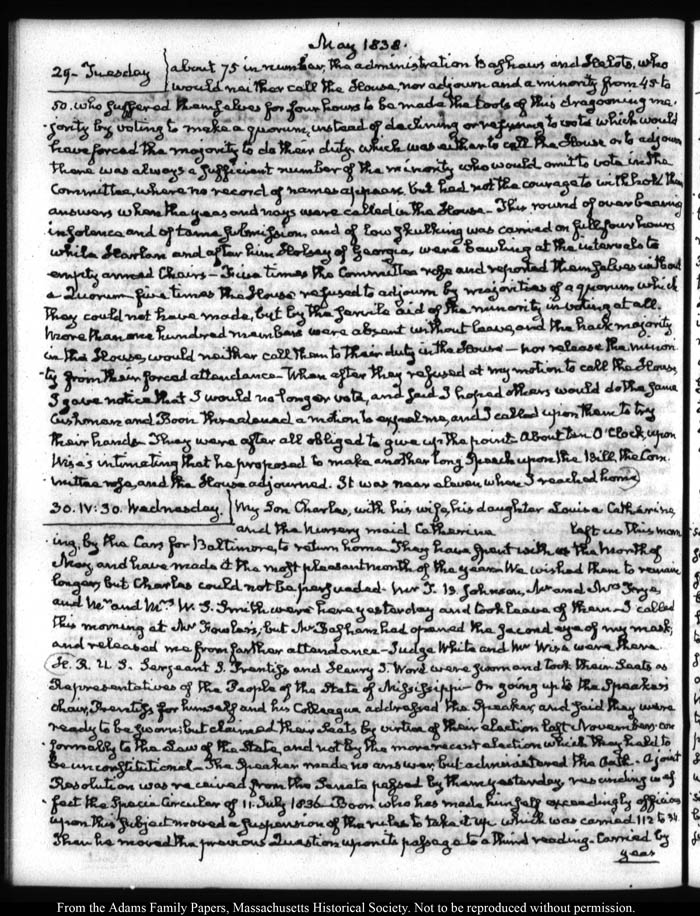 May 1838.
29. Tuesday
about 75 in number, the administration Bashaws and Helots, who
would neither call the House, nor adjourn and a minority from 45 to
50. who suffered themselves for four hours to be made the tools of this dragooning ma-
jority by voting to make a quorum, instead of declining or refusing to vote which would
have forced the majority to do their duty which was either to call the House or to adjourn
there was always a sufficient number of the minority who would omit to vote in the
Committee, where no record of names appears, but had not the courage to withhold their
answers when the yeas and nays were called in the House - This round of overbearing
insolence and of tame submission, and of low skulking was carried on full four hours
while Harlan and after him Holsey of Georgia, were bawling at the intervals to
empty armed Chairs - Five times the Committee rose and reported themselves without
a Quorum five times the House refused to adjourn by majorities of a quorum which
they could not have made, but by the servile aid of the minority in voting at all.
More than one hundred members were absent without leave, and the hack majority
in the House, would neither call them to their duty in the House - nor release the minori-
ty from their forced attendance - When after they refused at my motion to call the House,
I gave notice that I would no longer vote, and said I hoped others would do the same
Cushman and Boon threatened a motion to expel me, and I called upon them to try
their hands. They were after all obliged to give up the point. About ten O'Clock, upon
Wise's intimating that he proposed to make another long Speech upon the Bill, the Com-
mittee rose, and the House adjourned. It was near eleven when I reached home
30. IV: 30. Wednesday.
My Son Charles, with his wife, his daughter Louisa Catharine,
and the Nursery maid Catherine left us this morn-
ing, by the Cars for Baltimore, to return home. They have spent with us the Month of
May and have made it the most pleasant month of the year. We wished them to remain
longer, but Charles could not be persuaded. Mr T. B. Johnson, Mr and Mrs Frye,
and Mr and Mrs W. S. Smith were here yesterday and took leave of them - I called
this morning at Mr Fowler's; but Mr Bassham had opened the second eye of my mask,
and released me from farther attendance - Judge White and Mr Wise were there
H. R. U S. Sergeant S. Prentiss and Henry J. Word were sworn and took their Seats as
Representatives of the People of the State of Mississippi - On going up to the Speaker's
chair, Prentiss for himself and his Colleague addressed the Speaker, and said they were
ready to be sworn; but claimed their Seats by virtue of their election last November con-
formably to the Law of the State, and not by the more recent election which they held to
be unconstitutional - The Speaker made no answer, but administered the Oath. - A joint
Resolution was received from the Senate passed by them yesterday, rescinding in ef-
fect the Specie Circular of 11. July 1836 - Boon who has made himself exceedingly officious
upon this subject moved a suspension of the rules to take it up which was carried 112 to 34.
Then he moved the previous Question upon its passage to a third reading. Carried by
yeas
From the Adams Family Papers, Massachusetts Historical Society. Not to be reproduced without permission.